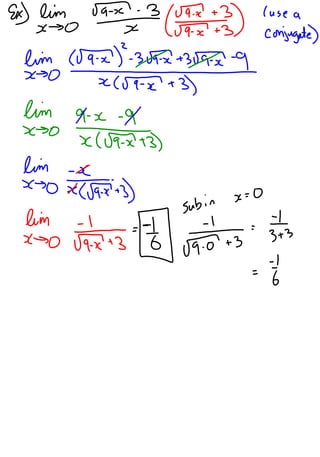 Ex) lim x→0 (√(9-x) - 3)/x ((√(9-x) + 3)/(√(9-x) + 3)) (use a conjugate)
lim x→0 ((√(9-x))² - 3√(9-x) + 3√(9-x) - 9)/(x(√(9-x) + 3))
lim x→0 (9-x-9)/(x(√(9-x) + 3))
lim x→0 (-x)/(x(√(9-x) + 3))
sub in x=0
lim x→0 (-1)/(√(9-x) + 3) = -1/6
(-1)/(√(9-0) + 3) = (-1)/(3+3)
= -1/6